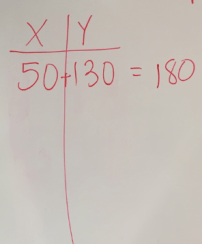 X Y
50+130 = 180